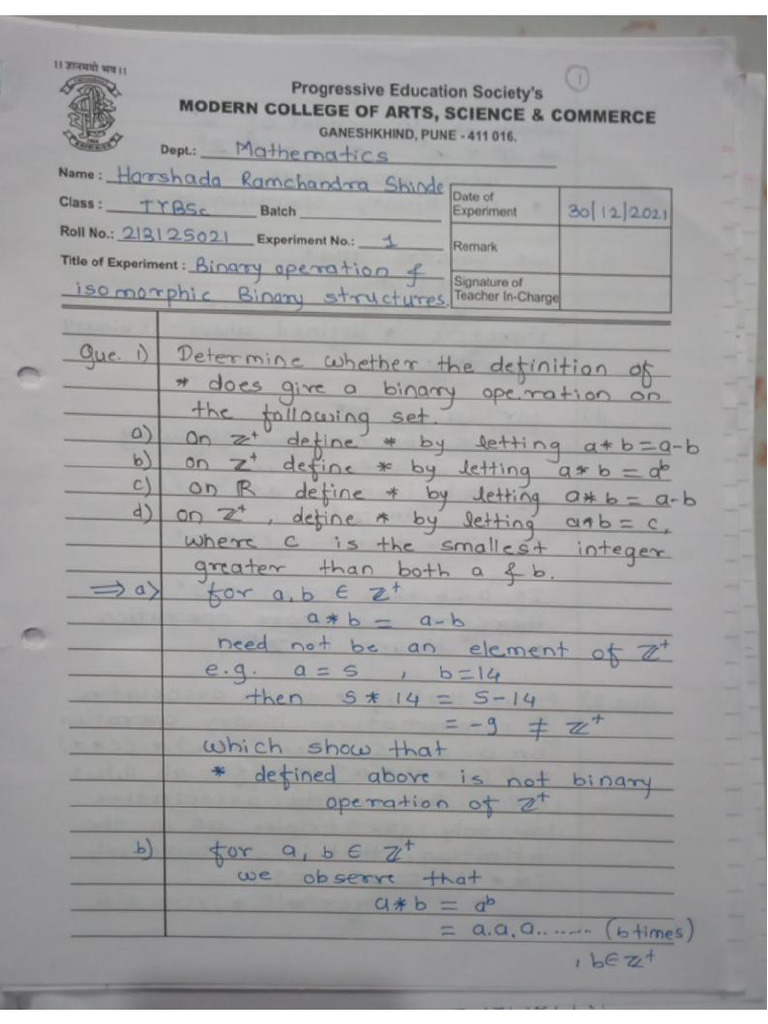 ।। ज्ञानमयो भव ।।
1
Progressive Education Society's
MODERN COLLEGE OF ARTS, SCIENCE & COMMERCE
GANESHKHIND, PUNE - 411 016.
Dept.: Mathematics
Name : Harshada Ramchandra Shinde
Class : TYBSc Batch
Roll No.: 213125021 Experiment No.: 1
Title of Experiment : Binary operation &
isomorphic Binary structures.
Date of
Experiment 30/12/2021
Remark
Signature of
Teacher In-Charge
Que. 1) Determine whether the definition of
* does give a binary operation on
the following set.
a) on ℤ⁺ define * by letting a*b = a-b
b) on ℤ⁺ define * by letting a*b = aᵇ
c) on ℝ define * by letting a*b = a-b
d) on ℤ⁺, define * by letting a*b = c,
where c is the smallest integer
greater than both a & b.
⇒ a) for a,b ∈ ℤ⁺
a*b = a-b
need not be an element of ℤ⁺
e.g. a = 5 , b=14
then 5 * 14 = 5-14
= -9 ≠ ℤ⁺
which show that
* defined above is not binary
operation of ℤ⁺
b) for a, b ∈ ℤ⁺
we observe that
a*b = aᵇ
= a.a.a....... (b times)
, b∈ℤ⁺